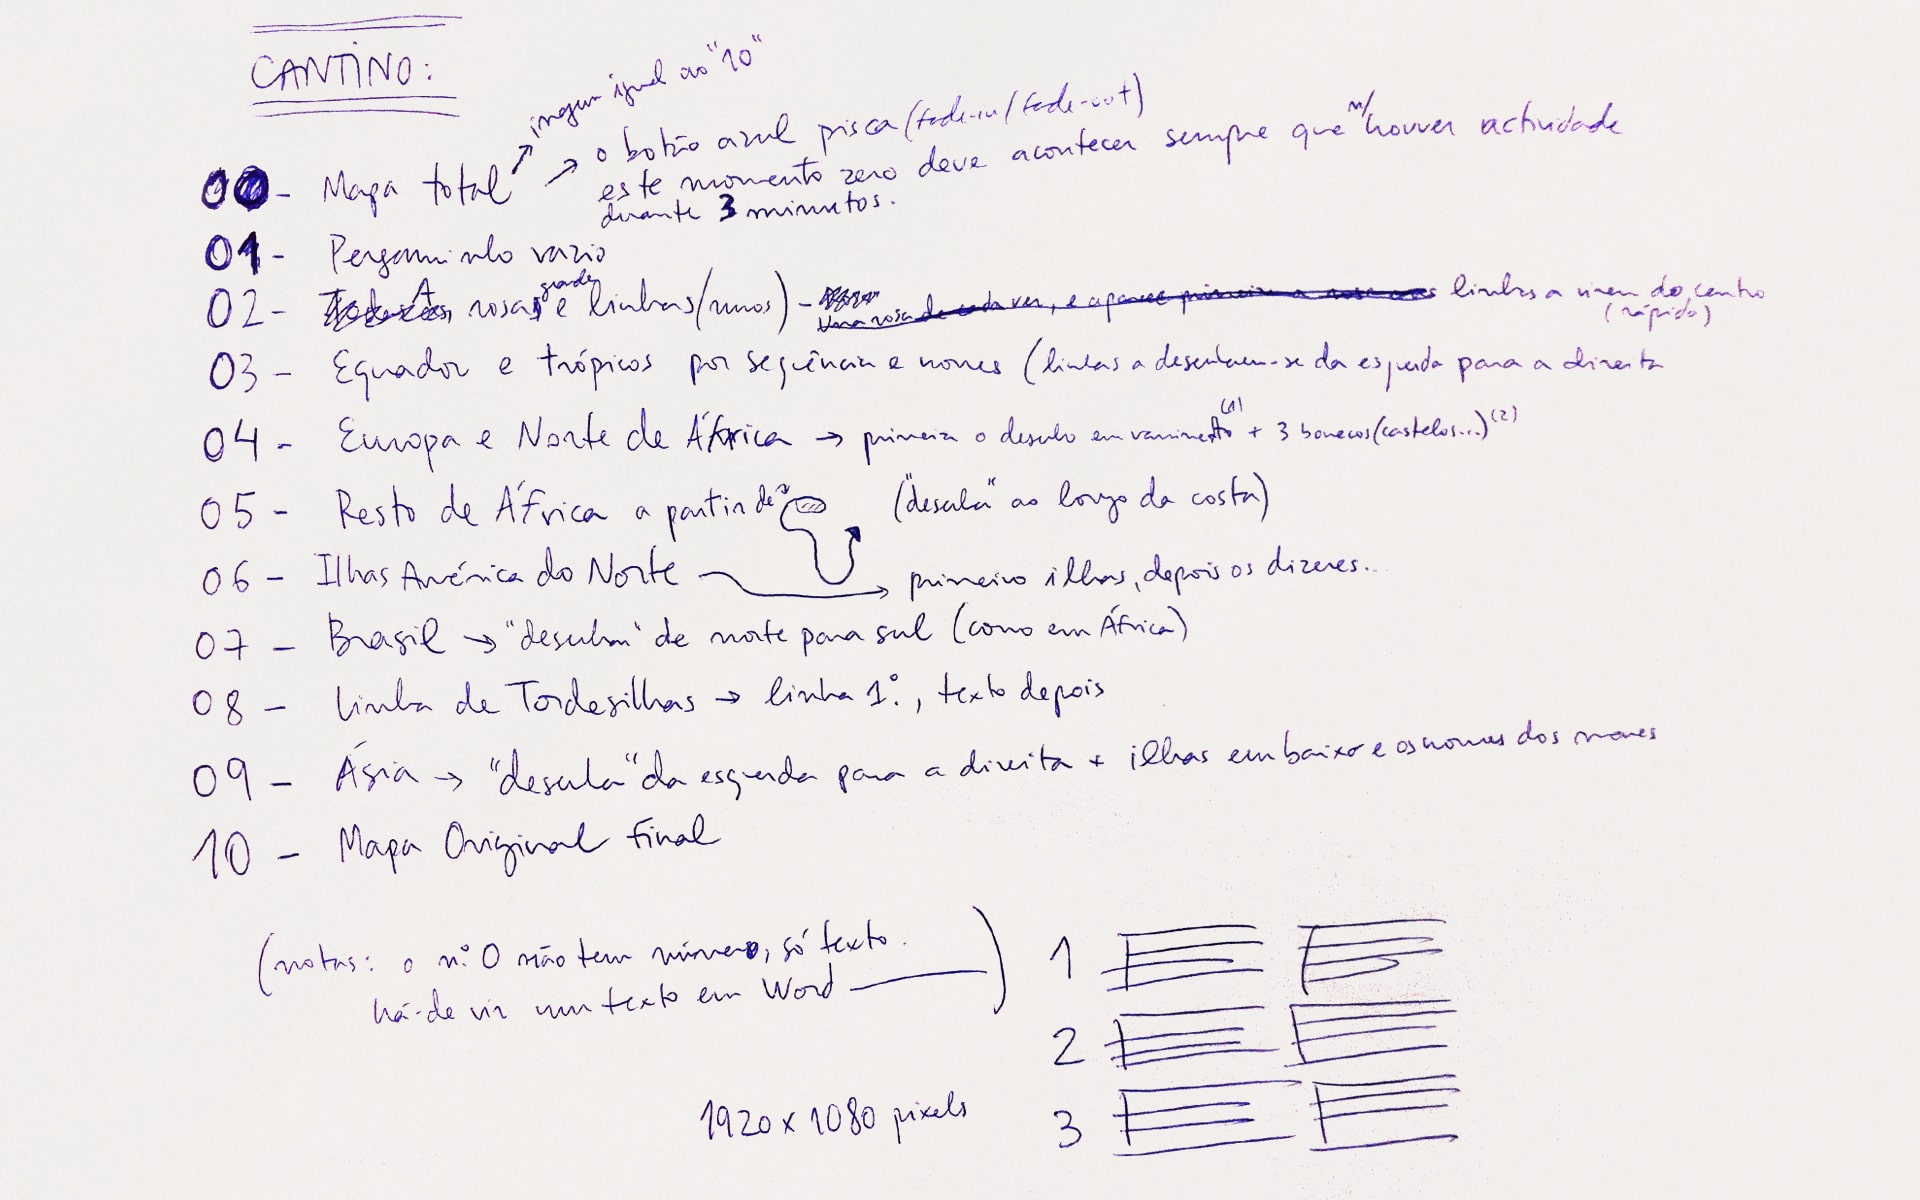 CANTINO:
imagem igual ao "10"
00- Mapa total
o botão azul pisca (fade-in/fade-out)
este momento zero deve acontecer sempre que ñ/ houver actividade
durante 3 minutos.
01- Pergaminho vazio
02- A rosa grande e linhas (rumos) - Uma rosa de cada vez, e aparece primeiro a rosa linhas a virem do centro
(rápido)
03 - Equador e trópicos por sequência e nomes (linhas a desenharem-se da esquerda para a direita
04 - Europa e Norte de África → primeiro o desenho em varrimento (1) + 3 bonecos (castelos...) (2)
05 - Resto de África a partir de ("desenha" ao longo da costa)
06 - Ilhas América do Norte → primeiro ilhas, depois os dizeres...
07 - Brasil → "desenhar" de norte para sul (como em África)
08 - Linha de Tordesilhas → linha 1º., texto depois
09 - Ásia → "desenha" da esquerda para a direita + ilhas em baixo e os nomes dos mares
10 - Mapa Original Final
(notas: o nº 0 não tem número, só texto.
há-de vir um texto em Word )
1
2
3
1920 x 1080 pixels